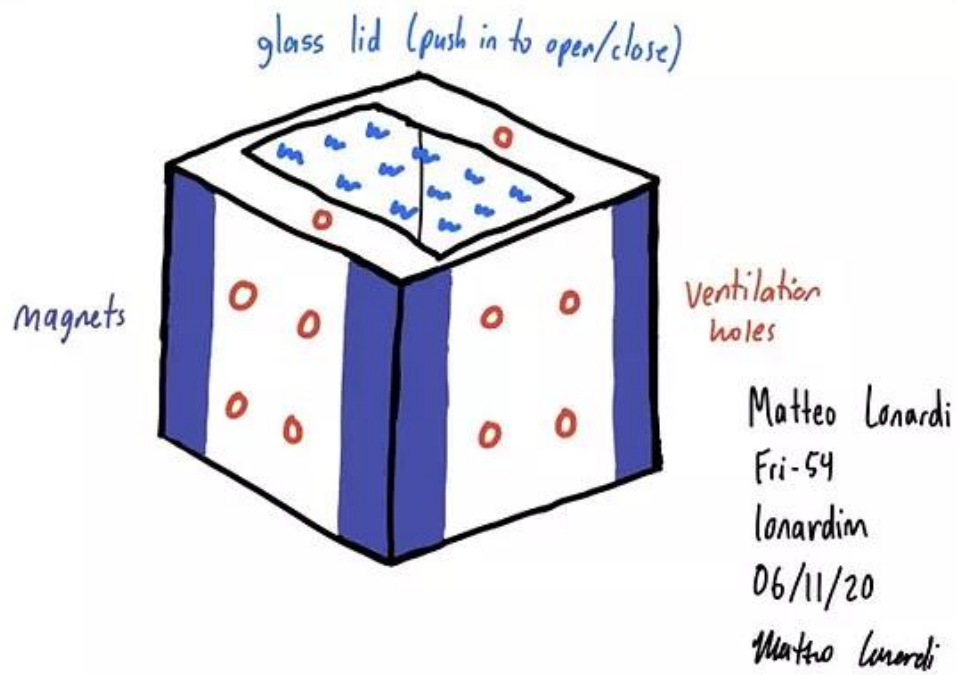 glass lid (push in to open/close)
magnets
Ventilation
holes
Matteo Lonardi
Fri-54
lonardim
06/11/20
Matteo Lonardi